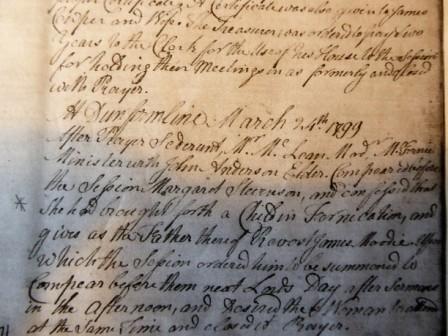 Certificate was also given to James
Cooper and Wife. The Treasurer was ordered to pay two
Years to the Clerk for the Use of his House to the Session
for holding their Meetings in as formerly and closed
with Prayer.
At Dunfermline March 24th 1799
After Prayer Sederunt, Mr Mc Lean
Minister with John Anderson Elder. Compear'd before
the Session Margaret Stevenson, and confessed that
She had brought forth a Child in Fornication, and
gives as the Father thereof Provost James Moodie. Upon
Which the Session ordered him to be summoned to
Compear before them next Lords Day after Sermon
in the Afternoon, and Desired the Woman to attend
at the Same Time and closed Prayer.